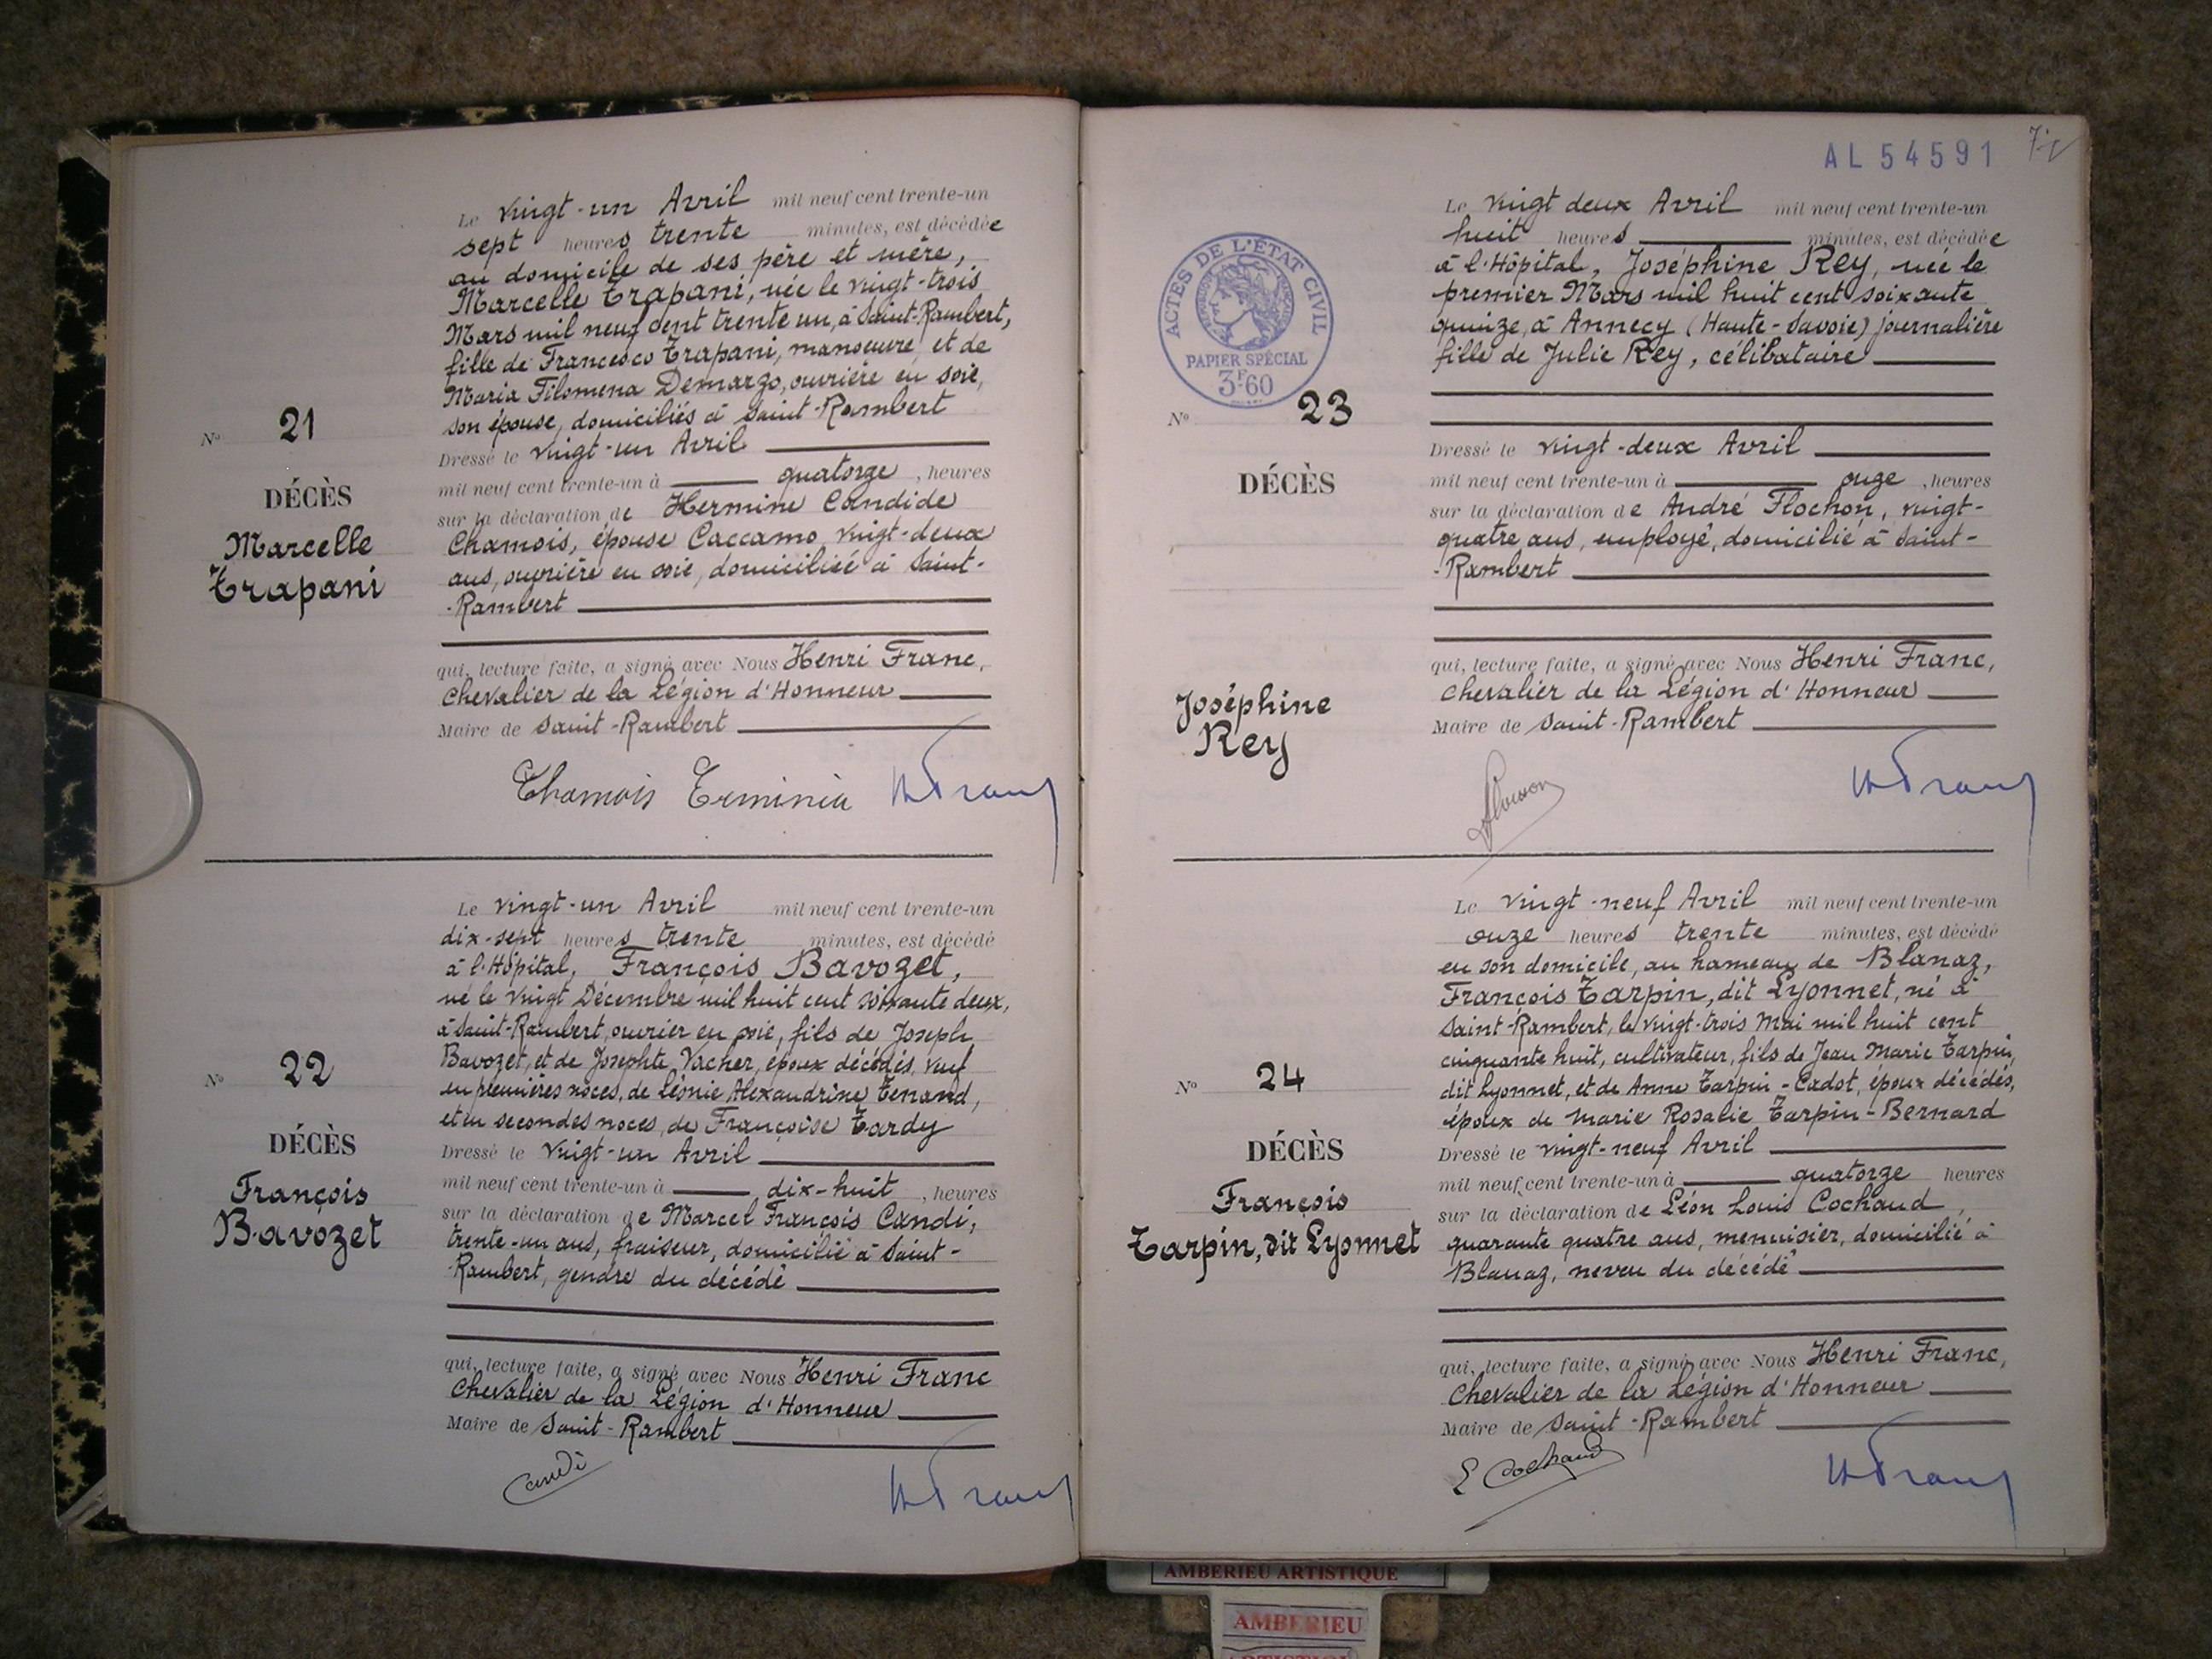 Le vingt-un Avril mil neuf cent trente-un
sept heures trente minutes, est décédée
au domicile de ses père et mère,
Marcelle Trapani, née le vingt-trois
Mars mil neuf cent trente un, à Saint-Rambert,
fille de Francesco Trapani, manoeuvre, et de
Maria Filomena Demarzo, ouvrière en soie,
son épouse, domiciliés à Saint-Rambert
N° 21
DÉCÈS
Marcelle
Trapani
Dressé le vingt-un Avril
mil neuf cent trente-un à quatorze, heures
sur la déclaration de Hermine Candide
Chamois, épouse Caccamo, vingt-deux
ans, ouvrière en soie, domiciliée à Saint-
-Rambert
qui, lecture faite, a signé avec Nous Henri Franc,
Chevalier de la Légion d'Honneur
Maire de Saint-Rambert
Chamois Erminia HFranc
Le vingt-un Avril mil neuf cent trente-un
dix-sept heures trente minutes, est décédé
à l'Hôpital, François Bavozet,
né le vingt Décembre mil huit cent soixante deux,
à Saint-Rambert, ouvrier en soie, fils de Joseph
Bavozet, et de Josephte Vacher, époux décédés, veuf
en premières noces, de Léonie Alexandrine Tenand,
et en secondes noces, de Françoise Tardy
N° 22
DÉCÈS
François
Bavozet
Dressé le vingt-un Avril
mil neuf cent trente-un à dix-huit, heures
sur la déclaration de Marcel François Candi,
trente-un ans, fraiseur, domicilié à Saint-
-Rambert, gendre du décédé
qui, lecture faite, a signé avec Nous Henri Franc
Chevalier de la Légion d'Honneur
Maire de Saint-Rambert
Candi HFranc
AL 54591
Le vingt deux Avril mil neuf cent trente-un
huit heures minutes, est décédée
à l'Hôpital, Joséphine Rey, née le
premier Mars mil huit cent soixante
quinze, à Annecy (Haute-Savoie) journalière
fille de Julie Rey, célibataire
ACTES DE L'ÉTAT CIVIL
PAPIER SPÉCIAL
3F.60
N° 23
DÉCÈS
Joséphine
Rey
Dressé le vingt-deux Avril
mil neuf cent trente-un à onze, heures
sur la déclaration de André Flochon, vingt-
quatre ans, employé, domicilié à Saint-
-Rambert
qui, lecture faite, a signé avec Nous Henri Franc,
Chevalier de la Légion d'Honneur
Maire de Saint-Rambert
HFranc
Le vingt-neuf Avril mil neuf cent trente-un
onze heures trente minutes, est décédé
en son domicile, au hameau de Blanaz,
François Tarpin, dit Lyonnet, né à
Saint-Rambert, le vingt-trois Mai mil huit cent
cinquante huit, cultivateur, fils de Jean Marie Tarpin,
dit Lyonnet, et de Anne Tarpin-Cadot, époux décédés,
époux de Marie Rosalie Tarpin-Bernard
N° 24
DÉCÈS
François
Tarpin, dit Lyonnet
Dressé le vingt-neuf Avril
mil neuf cent trente-un à quatorze heures
sur la déclaration de Léon Louis Cochaud,
quarante quatre ans, menuisier, domicilié à
Blanaz, neveu du décédé
qui, lecture faite, a signé avec Nous Henri Franc,
Chevalier de la Légion d'Honneur
Maire de Saint-Rambert
L Cochaud HFranc
AMBERIEU ARTISTIQUE
AMBERIEU
ARTISTIQUE